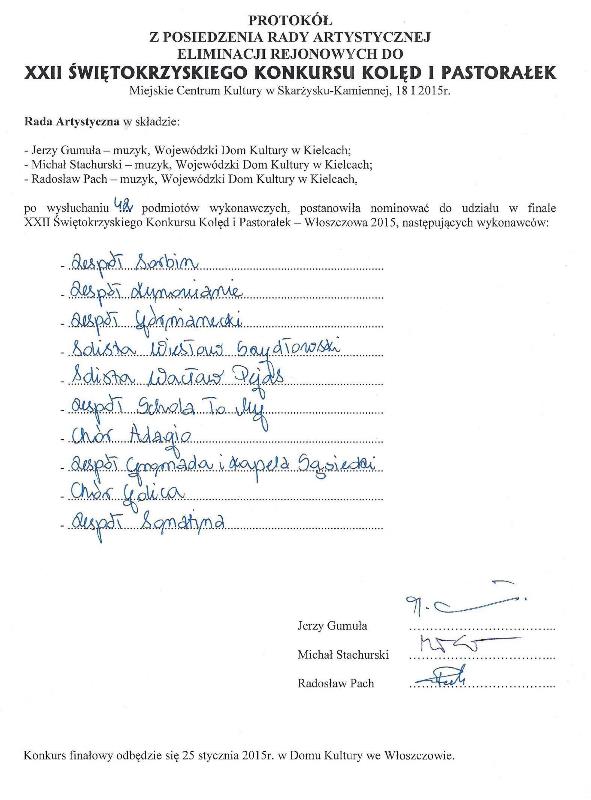 PROTOKÓŁ
Z POSIEDZENIA RADY ARTYSTYCZNEJ
ELIMINACJI REJONOWYCH DO
XXII ŚWIĘTOKRZYSKIEGO KONKURSU KOLĘD I PASTORAŁEK
Miejskie Centrum Kultury w Skarżysku-Kamiennej, 18 I 2015r.
Rada Artystyczna w składzie:
- Jerzy Gumuła – muzyk, Wojewódzki Dom Kultury w Kielcach;
- Michał Stachurski – muzyk, Wojewódzki Dom Kultury w Kielcach;
- Radosław Pach – muzyk, Wojewódzki Dom Kultury w Kielcach,
po wysłuchaniu 42 podmiotów wykonawczych, postanowiła nominować do udziału w finale
XXII Świętokrzyskiego Konkursu Kolęd i Pastorałek – Włoszczowa 2015, następujących wykonawców:
- Zespół Sorbin
- Zespół
- Zespół Górnianecki
- Solista Wiesław Szydłowski
- Solista Wacław Pejas
- Zespół Schola To My
- Chór Adagio
- Zespół Gromada i Kapela Sąsiedzi
- Chór Golica
- Zespół Sonatyna
Jerzy Gumuła
Michał Stachurski
Radosław Pach
Konkurs finałowy odbędzie się 25 stycznia 2015r. w Domu Kultury we Włoszczowie.